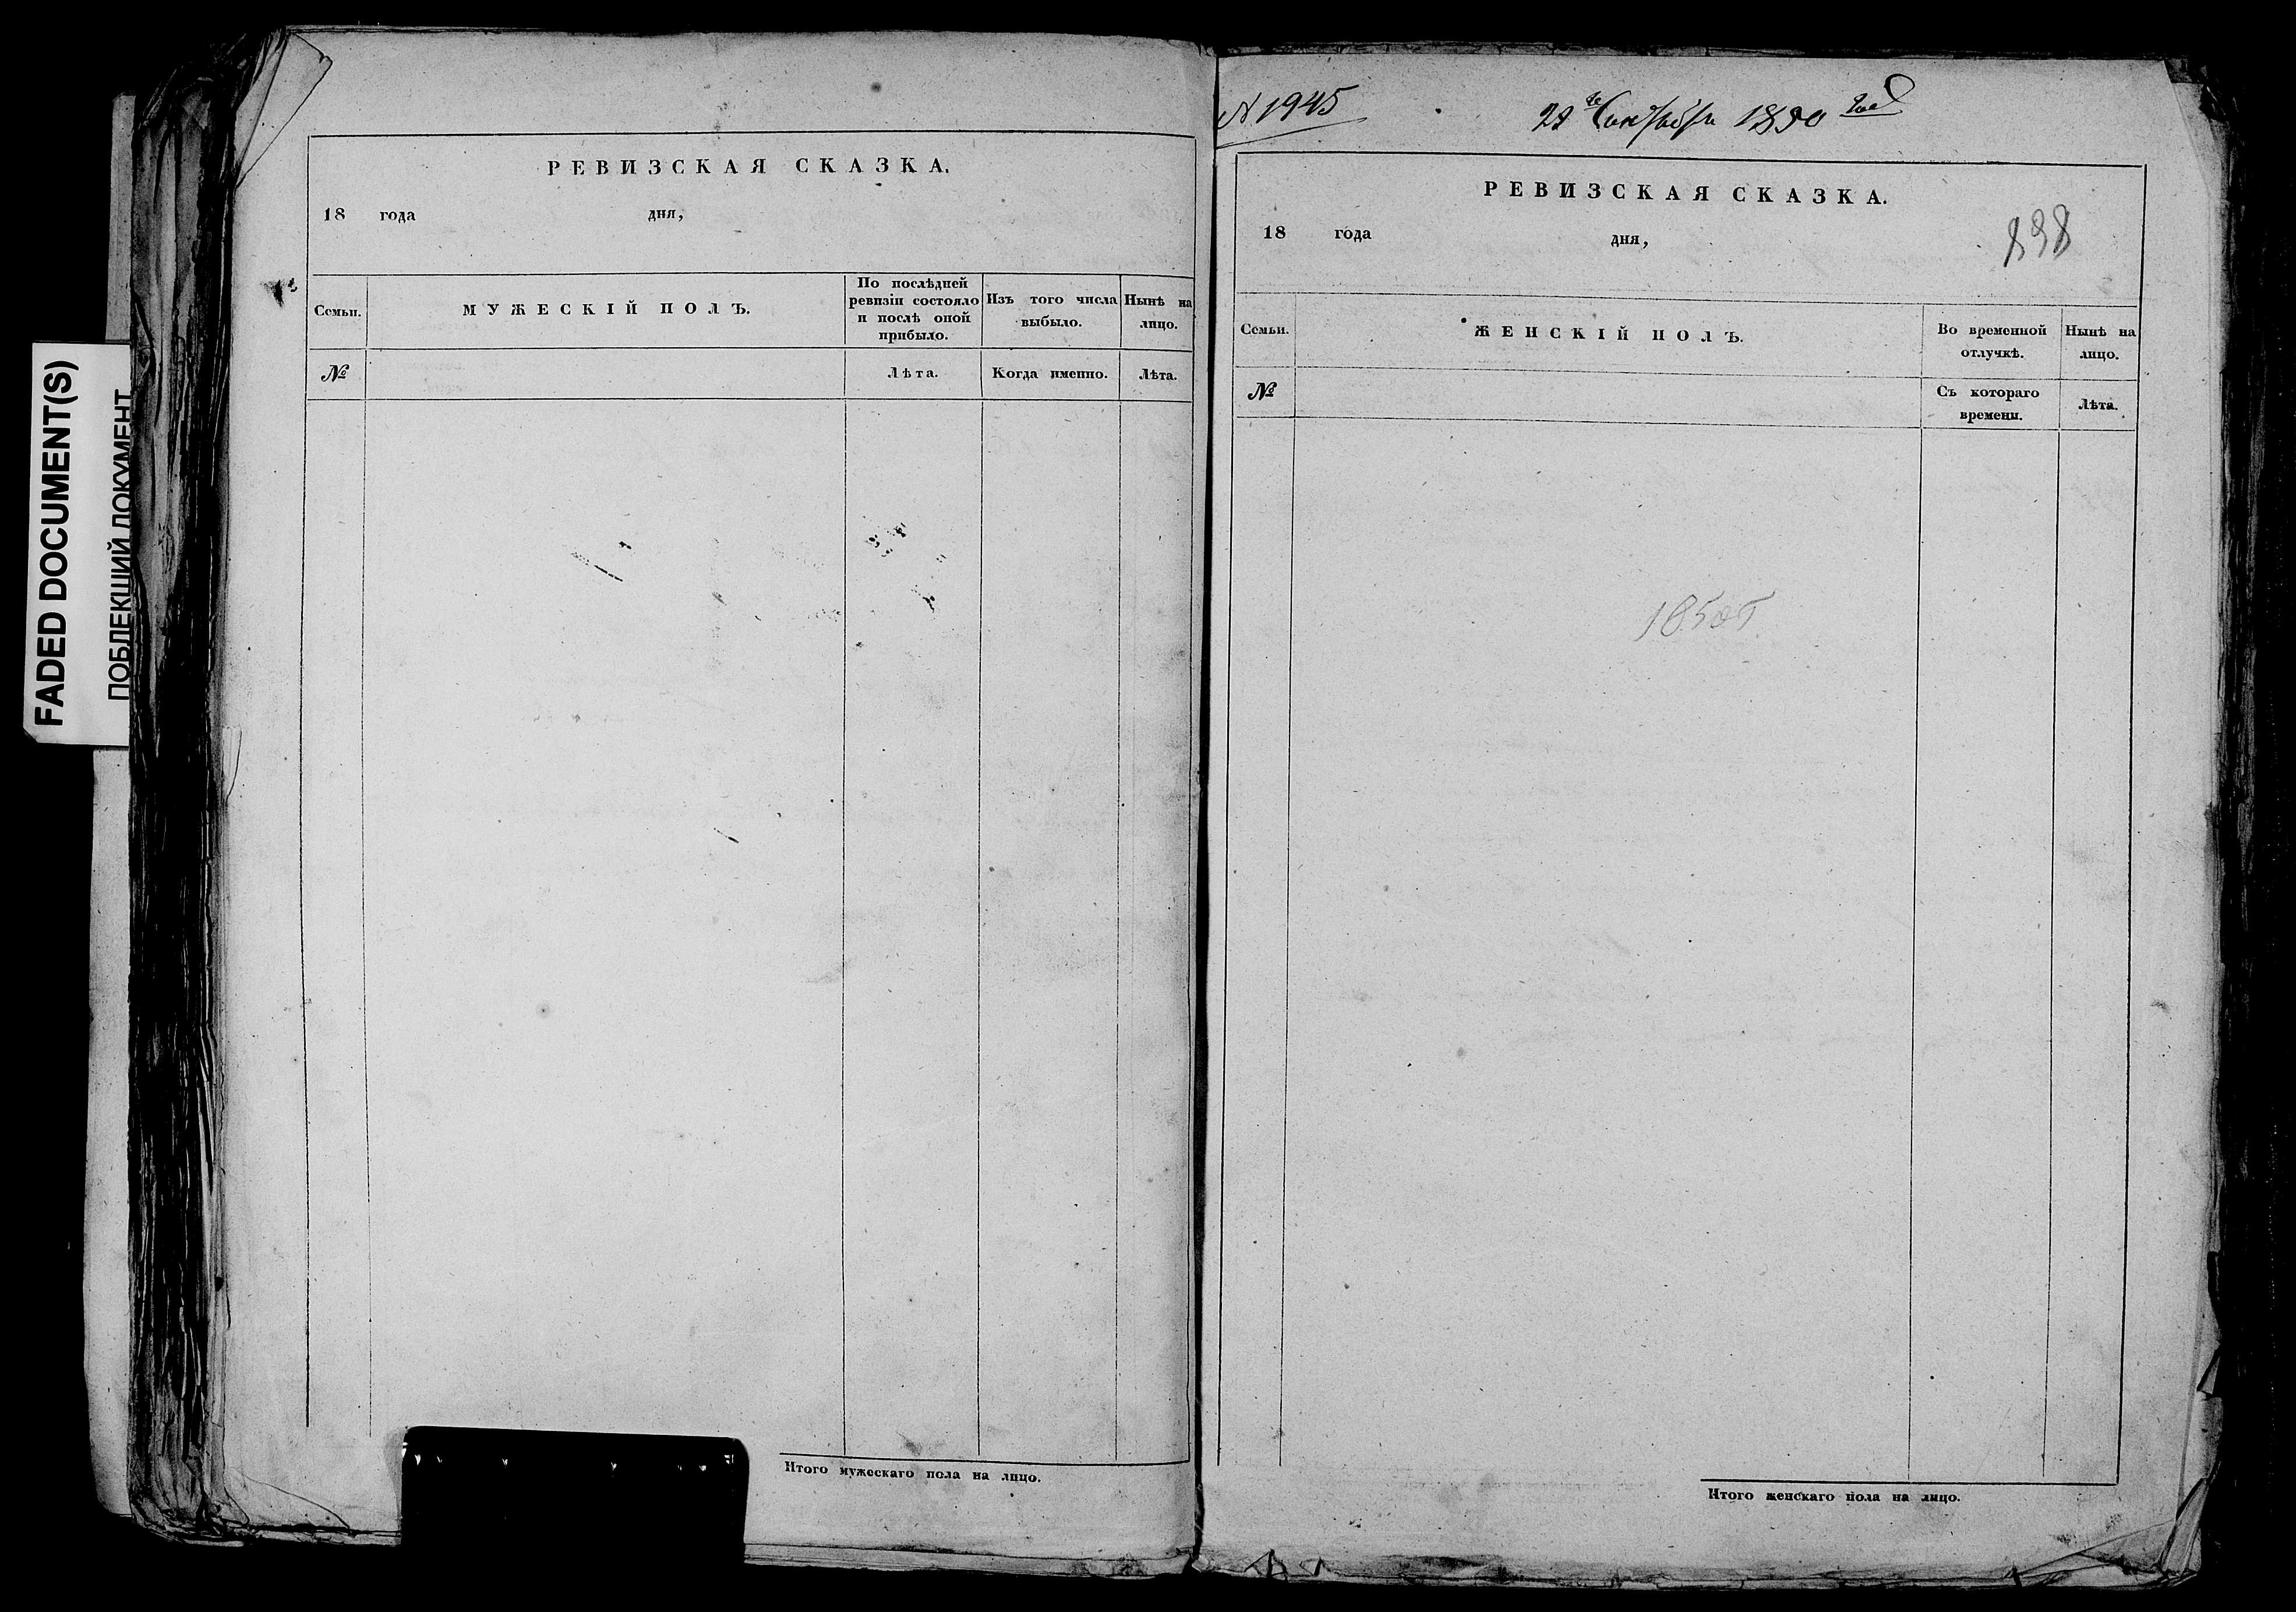 FADED DOCUMENT(S)
ПОБЛЕКШИЙ ДОКУМЕНТ
РЕВИЗСКАЯ СКАЗКА.
18 года дня,
Семьи.
МУЖЕСКІЙ ПОЛЪ.
По послѣдней
ревизіи состояло
и послѣ оной
прибыло.
Изъ того числа
выбыло.
Нынѣ на
лицо.
№
Лѣта.
Когда именно.
Лѣта.
Итого мужескаго пола на лицо.
№ 1945
1850
РЕВИЗСКАЯ СКАЗКА.
838
18 года дня,
Семьи.
ЖЕНСКІЙ ПОЛЪ.
Во временной
отлучкѣ.
Нынѣ на
лицо.
№
Съ котораго
времени.
Лѣта.
Итого женскаго пола на лицо.